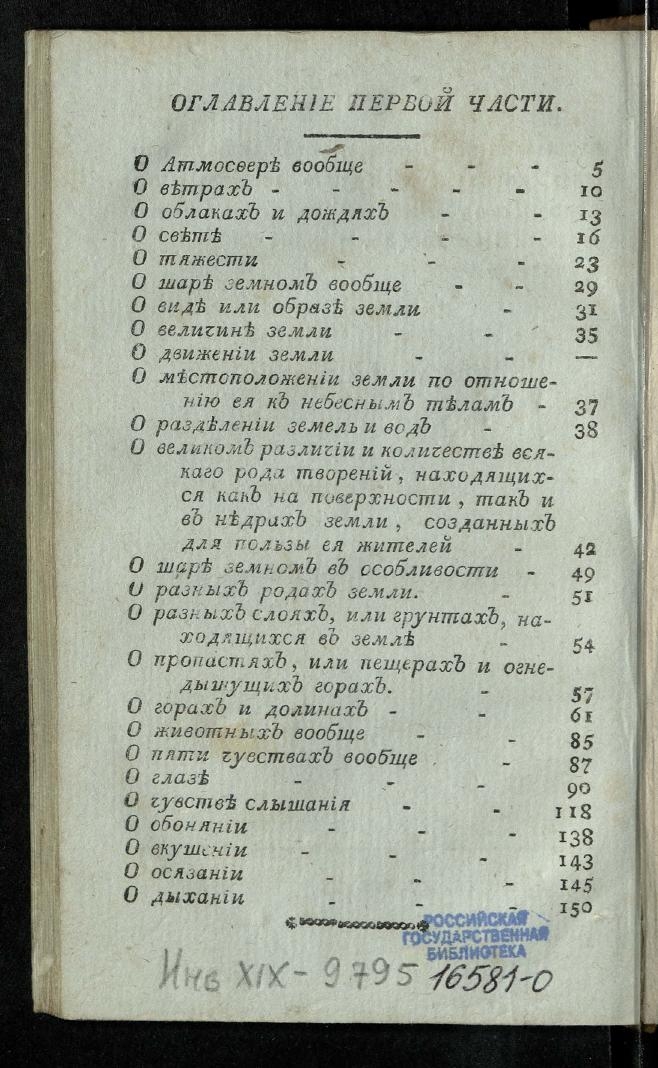 ОГЛАВЛЕНІЕ ПЕРВОЙ ЧАСТИ.
О Атмосѳерѣ вообще - - - 5
О вѣтрахЪ - - - - - 10
О облакахЪ и дождяхЪ - - 13
О свѣтѣ - - - - 16
О тяжести - - - 23
О шарѣ земномЪ вообще - - 29
О видѣ или образѣ земли - 31
О величинѣ земли - - 35
О движеніи земли - - —
О мѣстоположеніи земли по отноше-
нію ея кЪ небеснымЪ тѣламЪ - 37
О раздѣленіи земель и водЪ - 38
О великомЪ различіи и количествѣ вся-
каго рода твореній, находящих-
ся какЪ на поверхности, такЪ и
вЪ нѣдрахЪ земли, созданныхЪ
для пользы ея жителей - 42
О шарѣ земномЪ вЪ особливости - 49
О разныхЪ родахЪ земли. - 51
О разныхЪ слояхЪ, или грунтахЪ, на-
ходящихся вЪ землѣ - 54
О пропастяхЪ, или пещерахЪ и огне-
дышущихЪ горахЪ. - 57
О горахЪ и долинахЪ - - 61
О животныхЪ вообще - - 85
О пяти чувствахЪ вообще - 87
О глазѣ - - - 90
О чувствѣ слышанія - - 118
О обоняніи - - - 138
О вкушеніи - - - 143
О осязаніи - - - 145
О дыханіи - - - 150
РОССИЙСКАЯ
ГОСУДАРСТВЕННАЯ
БИБЛИОТЕКА
Инв XIX-9795 16581-0